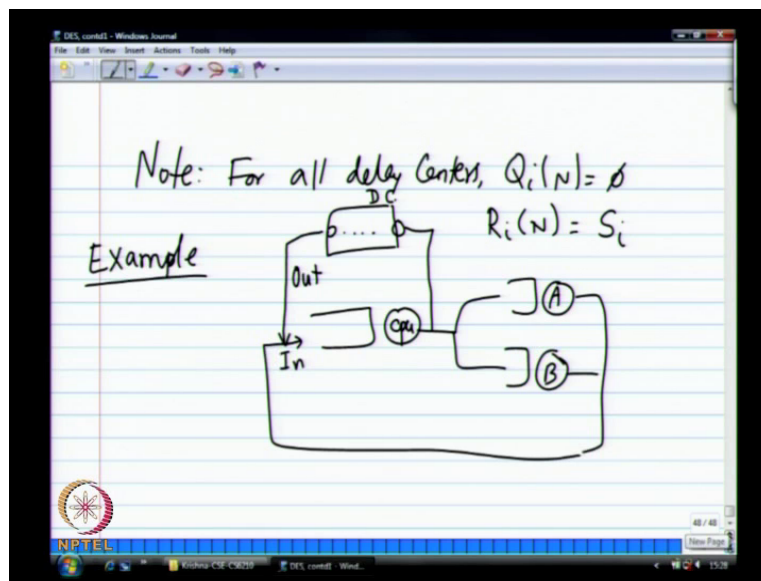 DES, contd1 - Windows Journal
File Edit View Insert Actions Tools Help
Note: For all delay Centers, Qi(N) = ø
DC
Ri(N) = Si
Example
Out
Cpu
A
In
B
48 / 48
NPTEL
New Page
Krishna-CSE-CS6210
DES, contd1 - Wind...
15:28